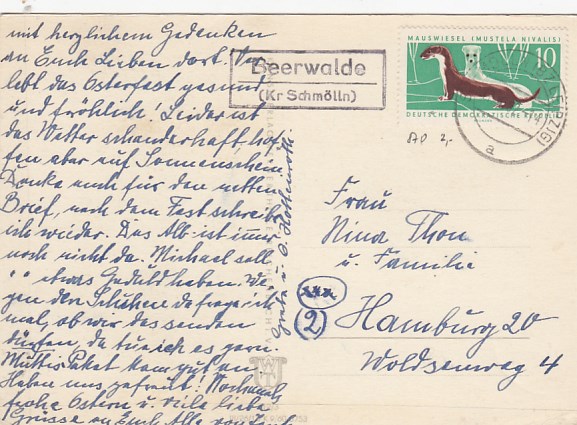 mit herzlichem Gedenken
an Euch Lieben dort. Ver-
lebt das Osterfest gesund
und fröhlich! Leider ist
das Wetter schauderhaft, hof-
fen aber auf Sonnenschein
Danke auch für den netten
Brief, nach dem Fest schreibe
ich wieder. Das Alb ist immer
noch nicht da. Michael soll
" " etwas Geduld haben. We-
gen den Schuhen da frage ich
mal, ob wir das senden
dürfen, da tu ich es gern.
Muttis Paket kam gut an
Haben uns gefreut! Nochmals
frohe Ostern u. viele liebe
Grüsse an Euch Alle von
Greta u. O. Hottenroth
Beerwalde
(Kr Schmölln)
MAUSWIESEL (MUSTELA NIVALIS)
10
DEUTSCHE DEMOKRATISCHE REPUBLIK
a
AP 2,-
Frau
Nina Thon
u. Familie
xxx
2
Hamburg 20
Woldsenweg 4